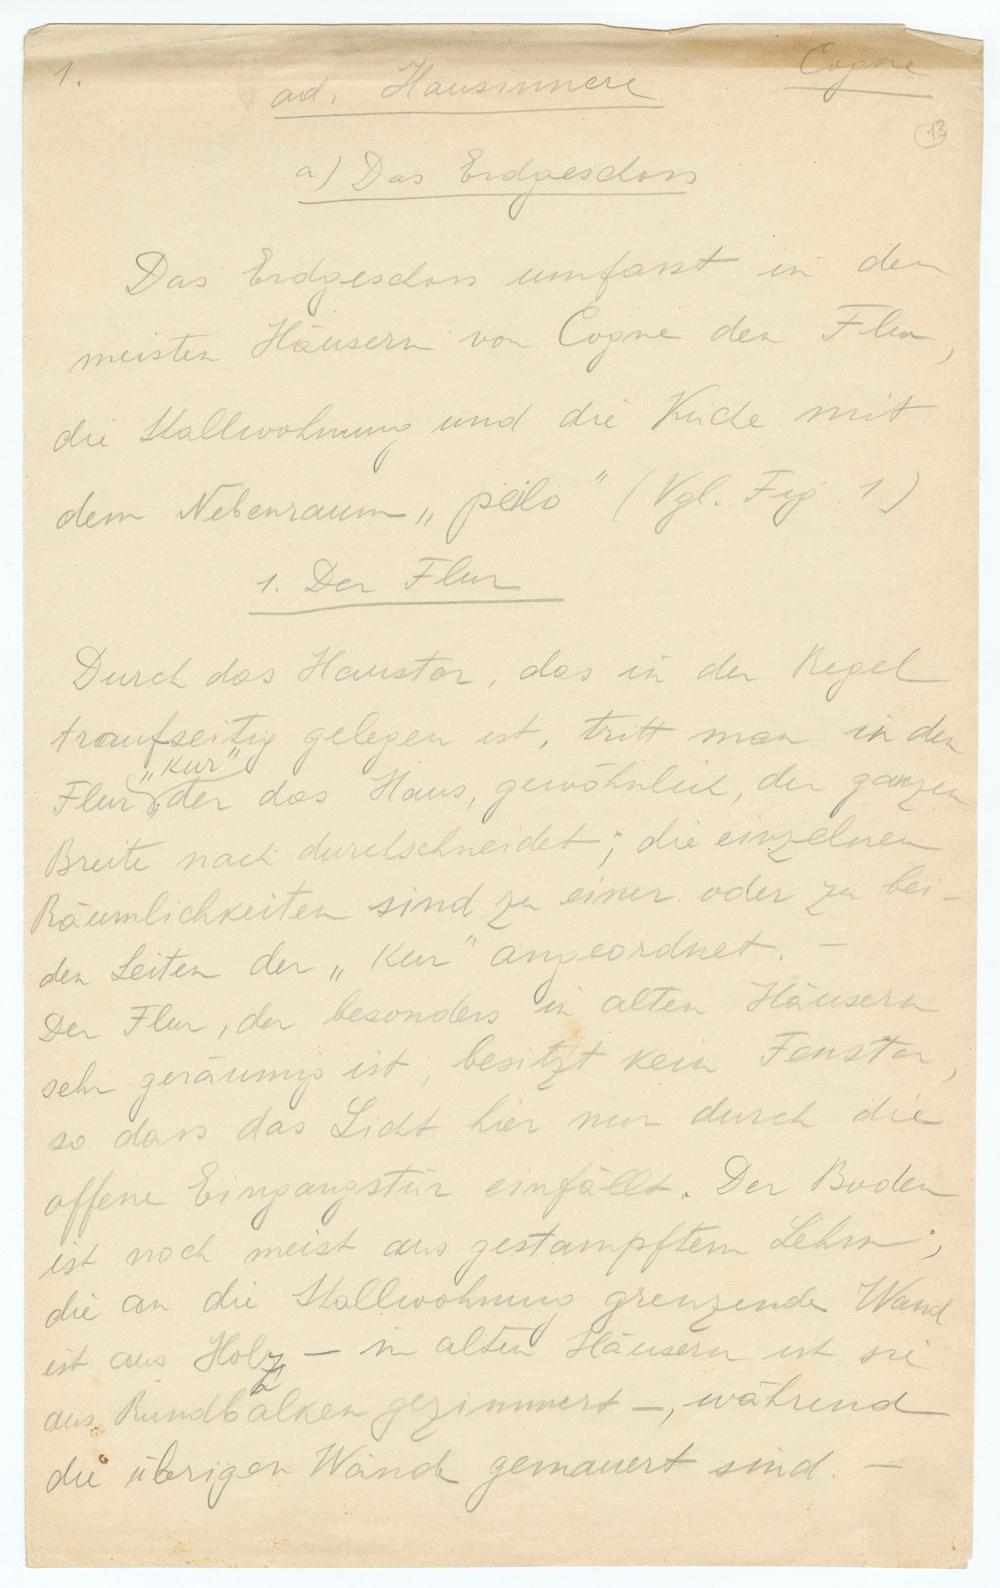 1.
ad. Hausinnere
Cogne
13
a) Das Erdgeschoss
Das Erdgeschoss umfasst in den
meisten Häusern von Cogne den Flur,
die Stallwohnung und die Küche mit
dem Nebenraum „pëilo" (Vgl. Fig. 1.)
1. Der Flur
Durch das Haustor, das in der Regel
traufseitig gelegen ist, tritt man in den
„kur"
Flur, der das Haus, gewöhnlich, der ganzen
Breite nach durchschneidet; die einzelnen
Räumlichkeiten sind zu einer oder zu bei-
den Seiten der „Kur" angeordnet. –
Der Flur, der besonders in alten Häusern
sehr geräumig ist, besitzt kein Fenster,
so dass das Licht hier nur durch die
offene Eingangstür einfällt. Der Boden
ist noch meist aus gestampftem Lehm;
die an die Stallwohnung grenzende Wand
ist aus Holz – in alten Häusern ist sie
aus Rundbalken gezimmert –, während
die übrigen Wände gemauert sind. –